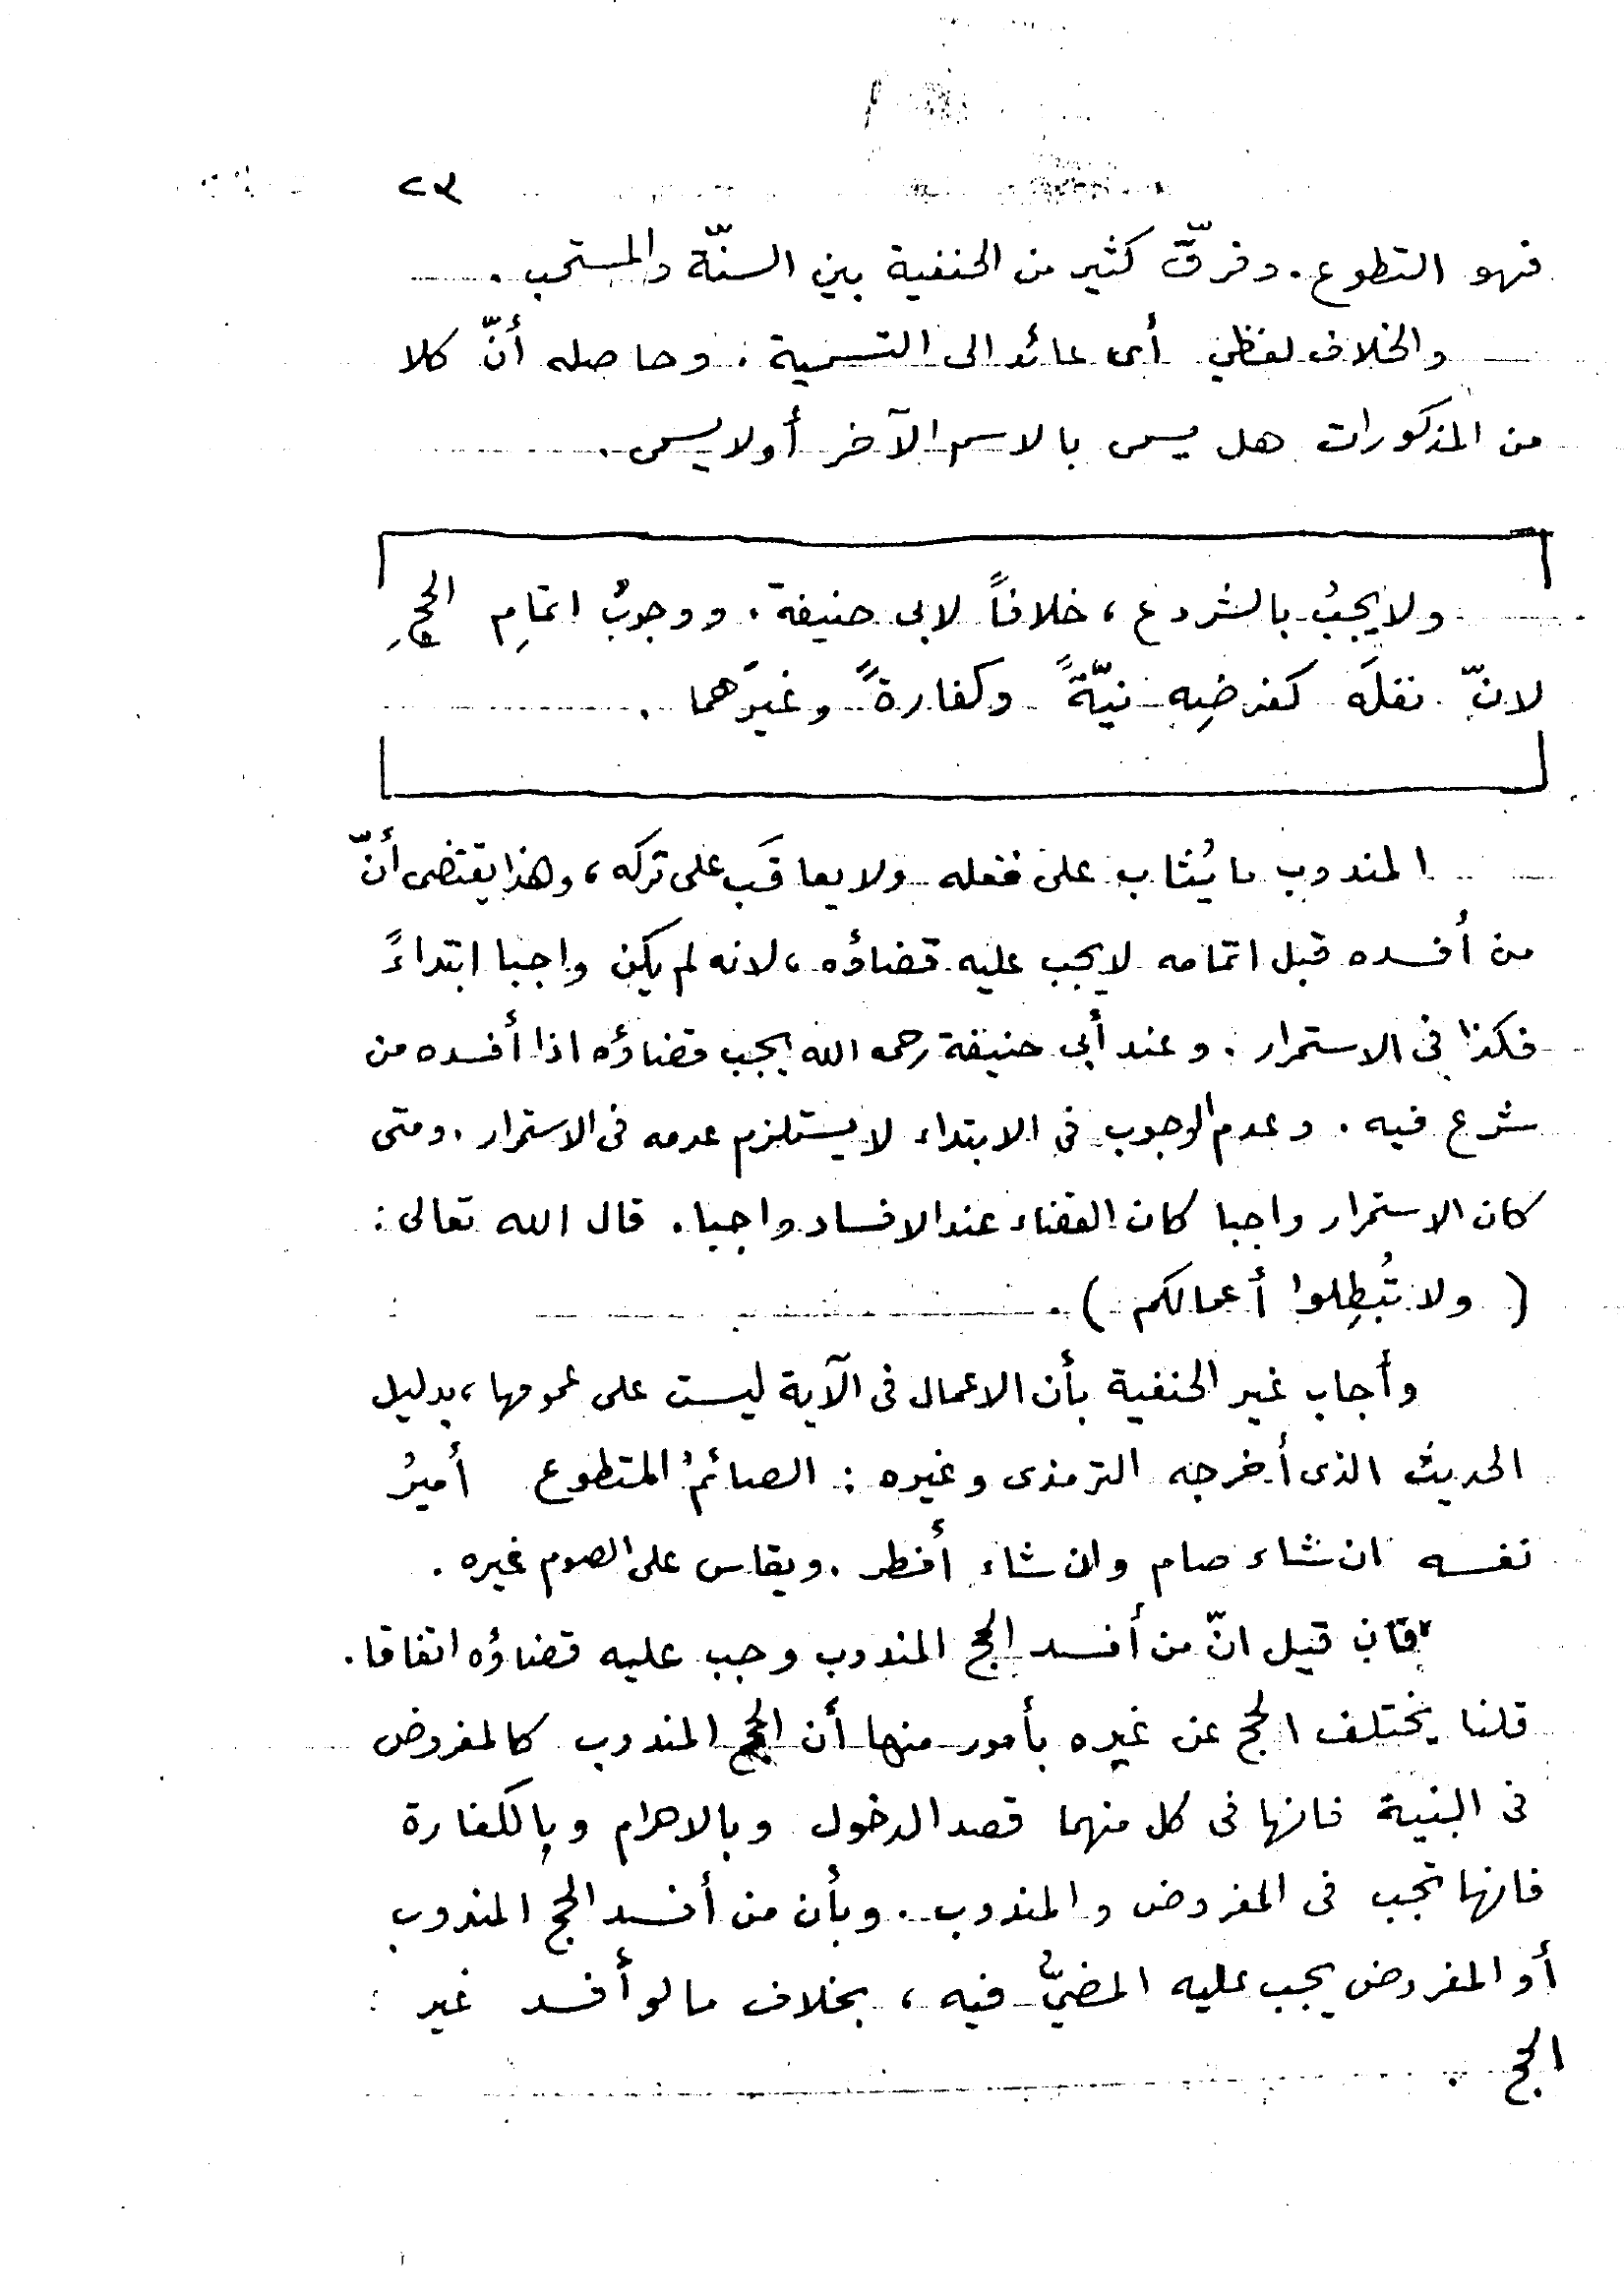 ٢٣
فهو التطوع. وفرّق كثير من الحنفية بين السنّة والمستحب.
والخلاف لفظي أى عائد الى التسمية. وحاصله أنّ كلا
من المذكورات هل يسمى بالاسم الآخر أولا يسمى.
ولا يجبُ بالشروع، خلافاً لابى حنيفة. ووجوبُ اتمامِ الحجِ
لانّ نفلَه كفرضِه نيّةً وكفارةً وغيرَهما.
المندوب ما يُثاب على فعله ولا يعاقَب على تركه، وهذا يقتضى أنّ
من أفسده قبل اتمامه لا يجب عليه قضاؤه، لانه لم يكن واجبا ابتداءً
فكذا فى الاستمرار. وعند أبى حنيفة رحمه الله يجب قضاؤه اذا أفسده من
شرع فيه. وعدم الوجوب فى الابتداء لا يستلزم عدمه فى الاستمرار. ومتى
كان الاستمرار واجبا كان القضاء عند الافساد واجبا. قال الله تعالى:
(ولا تُبطِلوا أعمالكم).
وأجاب غير الحنفية بأن الاعمال فى الآية ليست على عمومها، بدليل
الحديث الذى أخرجه الترمذى وغيره: الصائمُ المتطوع أميرُ
نفسه ان شاء صام وان شاء أفطر. ويقاس على الصوم غيره.
فان قيل انّ من أفسد الحج المندوب وجب عليه قضاؤه اتفاقا.
قلنا يختلف الحج عن غيره بأمور منها أن الحج المندوب كالمفروض
فى النية فانها فى كل منهما قصد الدخول وبالاحرام وبالكفارة
فانها تجب فى المفروض والمندوب. وبأن من أفسد الحج المندوب
أو المفروض يجب عليه المضيُّ فيه، بخلاف ما لو أفسد غير
الحج.